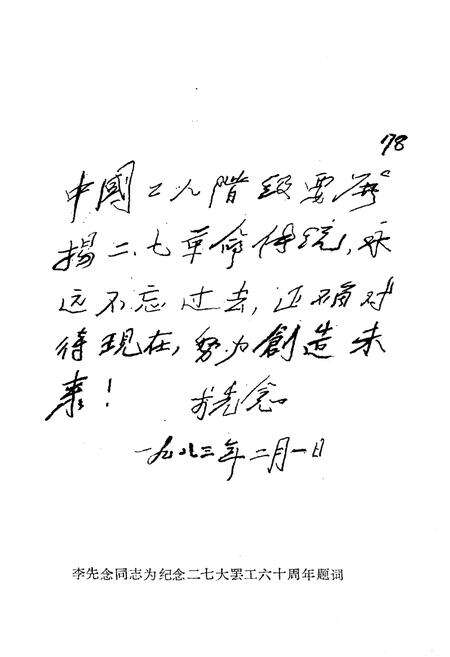 78
中國工人階級要發
揚二、七革命传统,永
远不忘过去,正确对
待现在,努力創造未
来!  李先念
一九八三年二月一日
李先念同志为纪念二七大罢工六十周年题词